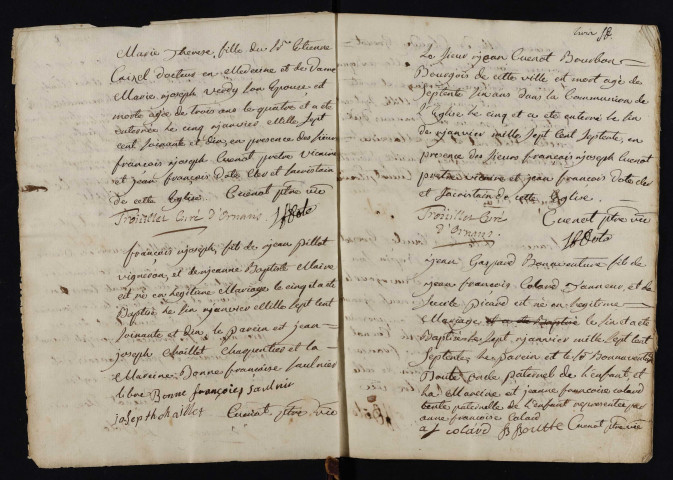 Marie Therese, fille du Sr Etienne
docteur en Medecine et de Dame
Marie njoseph verdy son Epouse est
morte agée de trois ans le quatre et a ete
enterrée le cinq njanvier mille Sept
cent soixante et dix, en presence des sieurs
francois njoseph Cuenot pretre vicaire
et jean francois Dote clerc et sacristain
de cette Eglise. Cuenot ptre vic
Trouillet Curé d'Ornans JfDote
francois njoseph, fils de njean pillot
vigneron, et de njeanne Baptiste
est né en Legitime Mariage le cinq et a ete
Baptisé le six njanvier Mille Sept cent
soixante et dix, le parein est jean
joseph Chaillet Charpentier et la
Mareine Bonne francoise saulnier
Bonne françoise saulnier
joseph chaillet Cuenot ptre vic
Le sieur njean Cuenot Bourbon
Bourgois de cette ville est mort agé de
Septente six ans dans la Communion de
l'Eglise le cinq et a ete enterré le six
de njanvier mille Sept cent Septente, en
presence des sieurs francois njoseph Cuenot
pretre vicaire et jean francois dote clerc
et sacristain de cette Eglise.
Trouillet Curé Cuenot ptre vic
d'Ornans. JfDote
njean Gaspard Bonnaventure fils de
njean francois Colard Tanneur, et de
picard est né en legitime
Mariage et a ete Baptisé le six et a ete
Baptisé le Sept njanvier mille Sept cent
Septente, le parein est le Sr Bonnaventure
Boutte oncle paternel de l'enfant et
la Mareine est jeanne francoise colard
tente paternelle de l'enfant representée par
anne francoise Colard
colard B Boutte Cuenot ptre vic